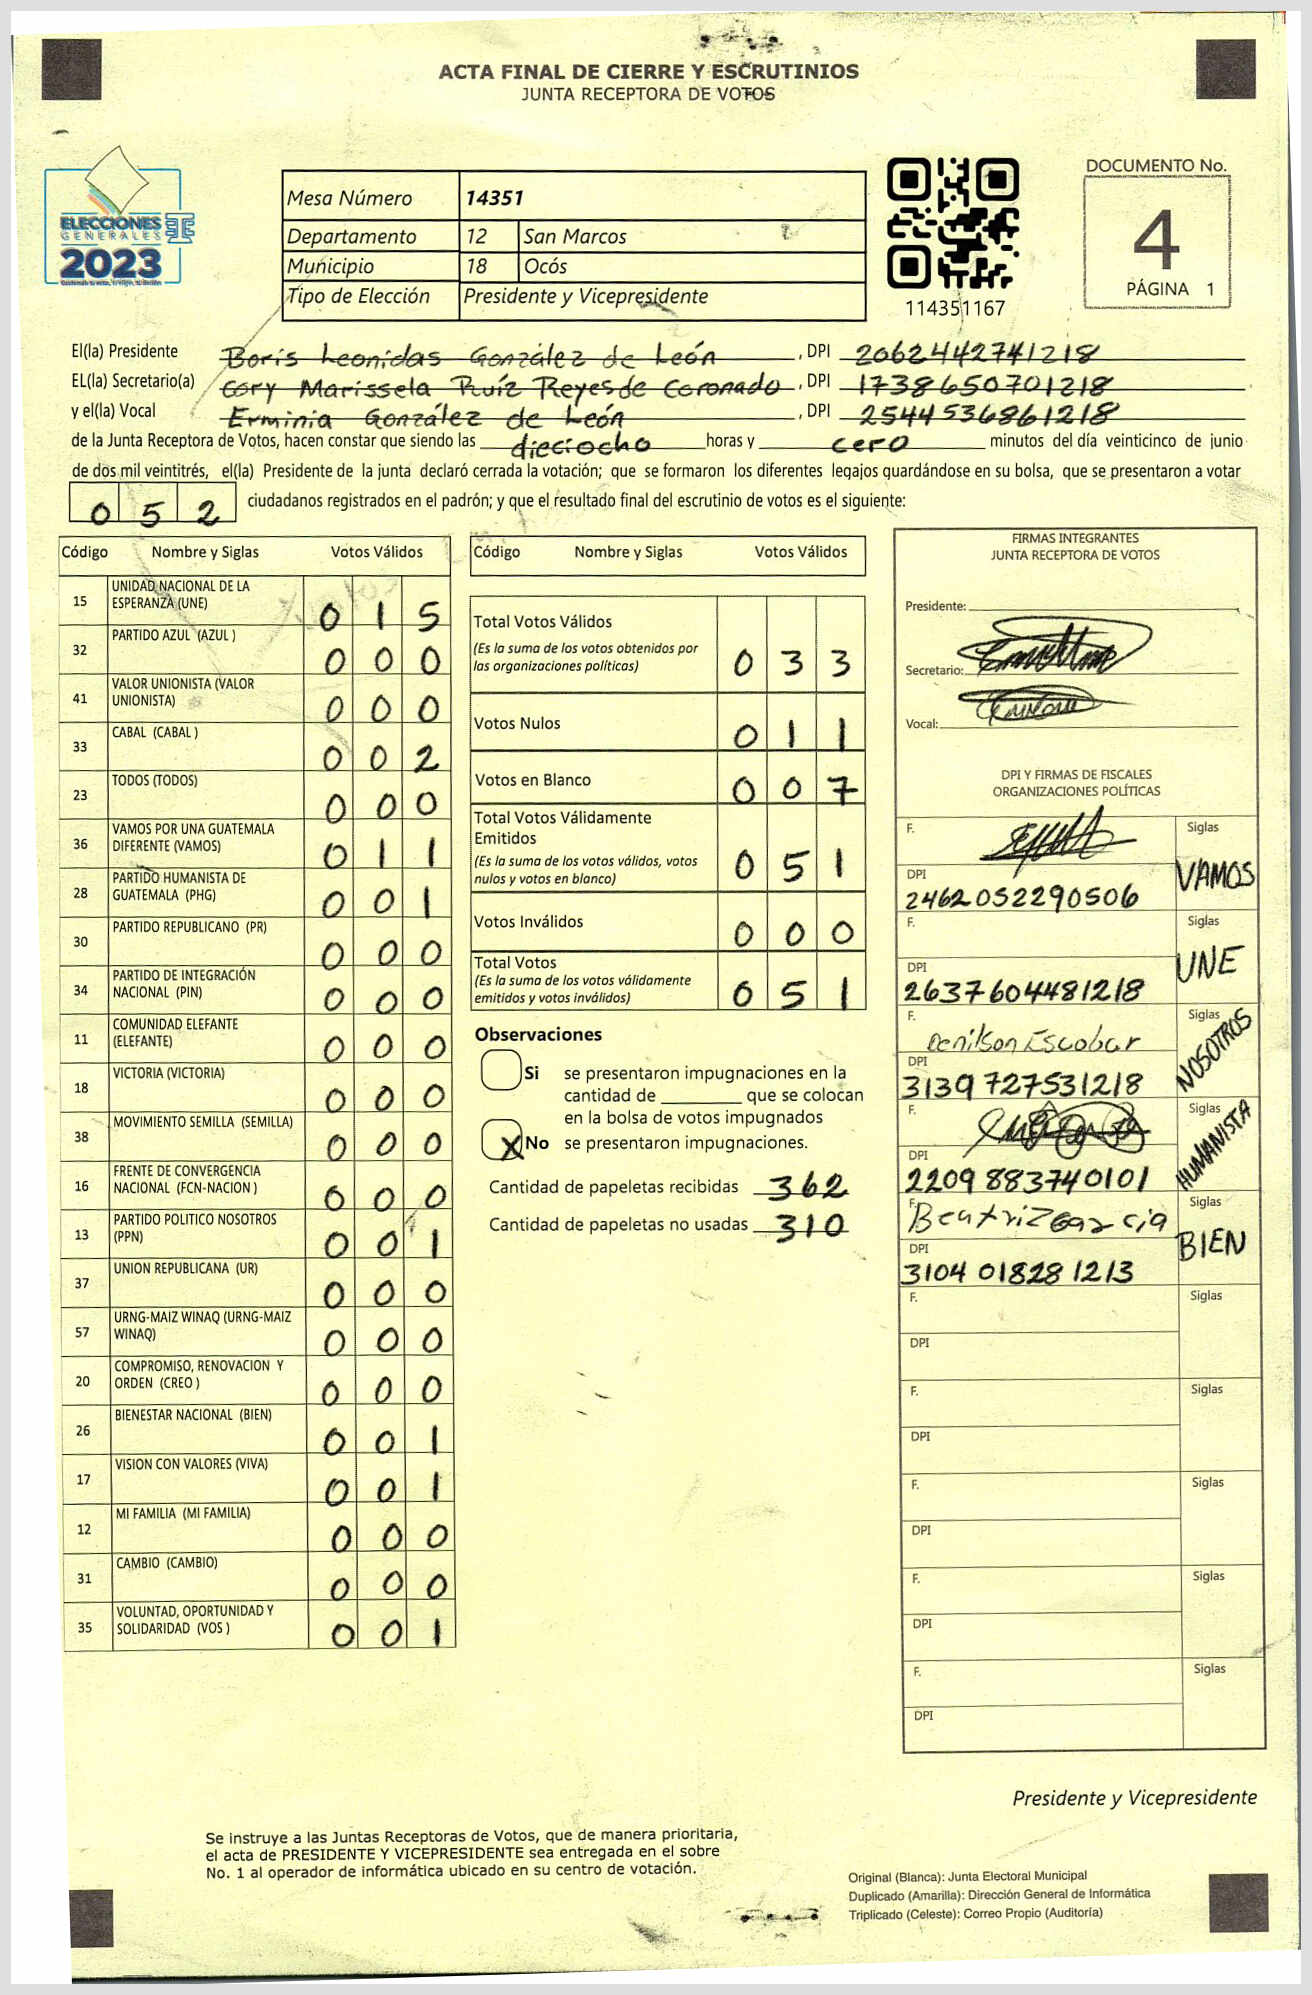 ACTA FINAL DE CIERRE Y ESCRUTINIOS
JUNTA RECEPTORA DE VOTOS
ELECCIONES
GENERALES
2023
Mesa Número 14351
Departamento 12 San Marcos
Municipio 18 Ocós
Tipo de Elección Presidente y Vicepresidente
114351167
DOCUMENTO No.
4
PÁGINA 1
El(la) Presidente Boris Leonidas González de León, DPI 2062442741218
EL(la) Secretario(a) Cory Marissela Ruíz Reyes de Coronado, DPI 1738650701218
y el(la) Vocal Erminia González de León, DPI 2544536861218
de la Junta Receptora de Votos, hacen constar que siendo las dieciocho horas y cero minutos del día veinticinco de junio
de dos mil veintitrés, el(la) Presidente de la junta declaró cerrada la votación; que se formaron los diferentes legajos guardándose en su bolsa, que se presentaron a votar
052 ciudadanos registrados en el padrón; y que el resultado final del escrutinio de votos es el siguiente:
Código Nombre y Siglas Votos Válidos
15 UNIDAD NACIONAL DE LA ESPERANZA (UNE) 015
32 PARTIDO AZUL (AZUL ) 000
41 VALOR UNIONISTA (VALOR UNIONISTA) 000
33 CABAL (CABAL ) 002
23 TODOS (TODOS) 000
36 VAMOS POR UNA GUATEMALA DIFERENTE (VAMOS) 011
28 PARTIDO HUMANISTA DE GUATEMALA (PHG) 001
30 PARTIDO REPUBLICANO (PR) 000
34 PARTIDO DE INTEGRACIÓN NACIONAL (PIN) 000
11 COMUNIDAD ELEFANTE (ELEFANTE) 000
18 VICTORIA (VICTORIA) 000
38 MOVIMIENTO SEMILLA (SEMILLA) 000
16 FRENTE DE CONVERGENCIA NACIONAL (FCN-NACION ) 000
13 PARTIDO POLITICO NOSOTROS (PPN) 001
37 UNION REPUBLICANA (UR) 000
57 URNG-MAIZ WINAQ (URNG-MAIZ WINAQ) 000
20 COMPROMISO, RENOVACION Y ORDEN (CREO ) 000
26 BIENESTAR NACIONAL (BIEN) 001
17 VISION CON VALORES (VIVA) 001
12 MI FAMILIA (MI FAMILIA) 000
31 CAMBIO (CAMBIO) 000
35 VOLUNTAD, OPORTUNIDAD Y SOLIDARIDAD (VOS ) 001
Código Nombre y Siglas Votos Válidos
Total Votos Válidos 033
(Es la suma de los votos obtenidos por
las organizaciones políticas)
Votos Nulos 011
Votos en Blanco 007
Total Votos Válidamente
Emitidos 051
(Es la suma de los votos válidos, votos
nulos y votos en blanco)
Votos Inválidos 000
Total Votos 051
(Es la suma de los votos válidamente
emitidos y votos inválidos)
Observaciones
Si se presentaron impugnaciones en la
cantidad de ________ que se colocan
en la bolsa de votos impugnados
X No se presentaron impugnaciones.
Cantidad de papeletas recibidas 362
Cantidad de papeletas no usadas 310
FIRMAS INTEGRANTES
JUNTA RECEPTORA DE VOTOS
Presidente:
Secretario:
Vocal:
DPI Y FIRMAS DE FISCALES
ORGANIZACIONES POLÍTICAS
F. Siglas VAMOS
DPI 2462052290506
F. Siglas UNE
DPI 2637604481218
F. Denilson Escobar Siglas NOSOTROS
DPI 3139727531218
F. Siglas HUMANISTA
DPI 2209883740101
F. Beatriz Garcia Siglas BIEN
DPI 3104018281213
F. Siglas
DPI
F. Siglas
DPI
F. Siglas
DPI
F. Siglas
DPI
F. Siglas
DPI
Presidente y Vicepresidente
Se instruye a las Juntas Receptoras de Votos, que de manera prioritaria,
el acta de PRESIDENTE Y VICEPRESIDENTE sea entregada en el sobre
No. 1 al operador de informática ubicado en su centro de votación.
Original (Blanca): Junta Electoral Municipal
Duplicado (Amarilla): Dirección General de Informática
Triplicado (Celeste): Correo Propio (Auditoría)